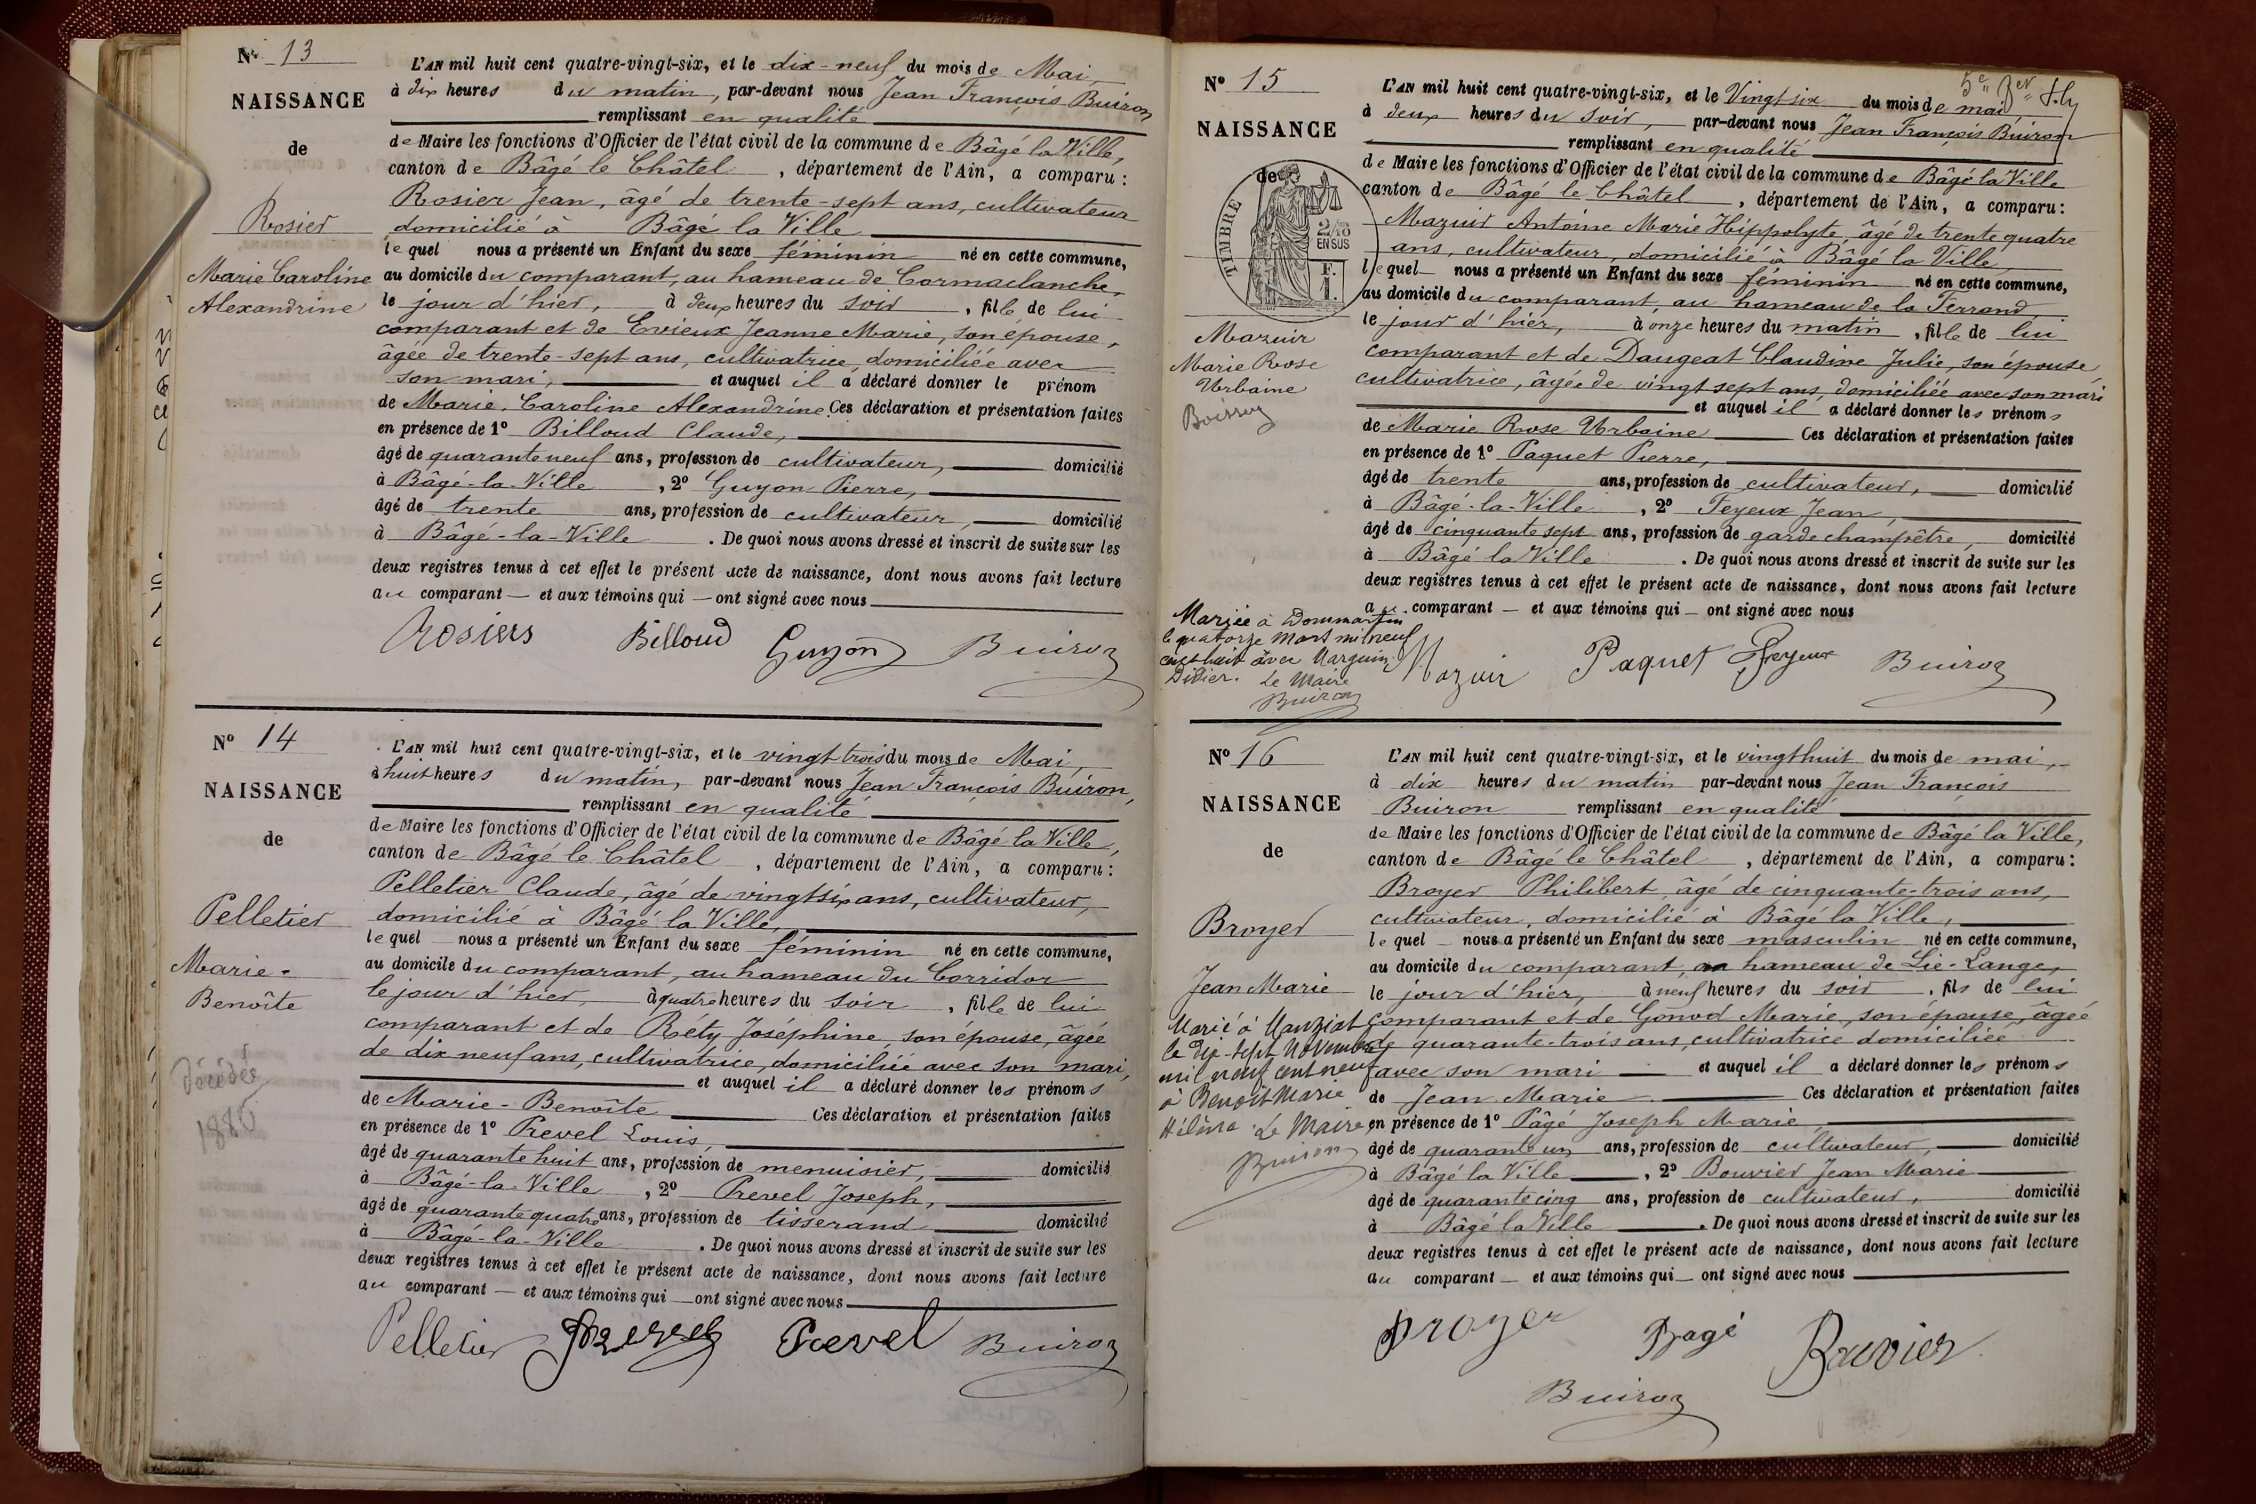 Nº 13
NAISSANCE
de
Rosier
Marie Caroline
Alexandrine
L'AN mil huit cent quatre-vingt-six, et le dix-neuf du mois de Mai,
à dix heures du matin, par-devant nous Jean François Buiron
remplissant en qualité
de Maire les fonctions d'Officier de l'état civil de la commune de Bâgé la Ville,
canton de Bâgé le Châtel, département de l'Ain, a comparu :
Rosier Jean, âgé de trente-sept ans, cultivateur
domicilié à Bâgé la Ville
lequel nous a présenté un Enfant du sexe féminin né en cette commune,
au domicile du comparant, au hameau de Cormaclanche,
le jour d'hier, à deux heures du soir, fille de lui
comparant et de Evieux Jeanne Marie, son épouse,
âgée de trente-sept ans, cultivatrice, domiciliée avec
son mari, et auquel il a déclaré donner le prénom
de Marie Caroline Alexandrine. Ces déclaration et présentation faites
en présence de 1º Billoud Claude,
âgé de quarante neuf ans, profession de cultivateur, domicilié
à Bâgé-la-Ville, 2º Guyon Pierre,
âgé de trente ans, profession de cultivateur, domicilié
à Bâgé-la-Ville. De quoi nous avons dressé et inscrit de suite sur les
deux registres tenus à cet effet le présent acte de naissance, dont nous avons fait lecture
au comparant — et aux témoins qui — ont signé avec nous
Rosiers Billoud Guyon Buiron
Nº 14
NAISSANCE
de
Pelletier
Marie-
Benoîte
Décédée
1886
L'AN mil huit cent quatre-vingt-six, et le vingt trois du mois de Mai,
à huit heures du matin, par-devant nous Jean François Buiron,
remplissant en qualité
de Maire les fonctions d'Officier de l'état civil de la commune de Bâgé la Ville,
canton de Bâgé le Châtel, département de l'Ain, a comparu :
Pelletier Claude, âgé de vingt six ans, cultivateur,
domicilié à Bâgé la Ville,
lequel nous a présenté un Enfant du sexe féminin né en cette commune,
au domicile du comparant, au hameau du Corridor
le jour d'hier, à quatre heures du soir, fille de lui
comparant et de Réty Joséphine, son épouse, âgée
de dix neuf ans, cultivatrice, domiciliée avec son mari,
et auquel il a déclaré donner les prénoms
de Marie-Benoîte Ces déclaration et présentation faites
en présence de 1º Prevel Louis,
âgé de quarante huit ans, profession de menuisier, domicilié
à Bâgé-la-Ville, 2º Prevel Joseph,
âgé de quarante quatre ans, profession de tisserand domicilié
à Bâgé-la-Ville. De quoi nous avons dressé et inscrit de suite sur les
deux registres tenus à cet effet le présent acte de naissance, dont nous avons fait lecture
au comparant — et aux témoins qui — ont signé avec nous
Pelletier Prevel Prevel Buiron
Nº 15
NAISSANCE
de
TIMBRE
2/10
EN SUS
F.
1.
Mazuir
Marie Rose
Urbaine
Mariée à Dommartin
le quatorze Mars mil neuf
cent huit avec Marguin
Didier. Le Maire
Buiron
L'AN mil huit cent quatre-vingt-six, et le Vingt six du mois de mai,
à deux heures du soir, par-devant nous Jean François Buiron
remplissant en qualité
de Maire les fonctions d'Officier de l'état civil de la commune de Bâgé la Ville
canton de Bâgé le Châtel, département de l'Ain, a comparu :
Mazuir Antoine Marie Hippolyte, âgé de trente quatre
ans, cultivateur, domicilié à Bâgé la Ville,
lequel nous a présenté un Enfant du sexe féminin né en cette commune,
au domicile du comparant, au hameau de la Ferrand
le jour d'hier, à onze heures du matin, fille de lui
comparant et de Daugeat Claudine Julie, son épouse
cultivatrice, âgée de vingt sept ans, domiciliée avec son mari
et auquel il a déclaré donner les prénoms
de Marie Rose Urbaine Ces déclaration et présentation faites
en présence de 1º Paquet Pierre,
âgé de trente ans, profession de cultivateur, domicilié
à Bâgé-la-Ville, 2º Feyeux Jean,
âgé de cinquante sept ans, profession de garde champêtre, domicilié
à Bâgé la Ville. De quoi nous avons dressé et inscrit de suite sur les
deux registres tenus à cet effet le présent acte de naissance, dont nous avons fait lecture
au comparant — et aux témoins qui — ont signé avec nous
Mazuir Paquet Feyeux Buiron
Nº 16
NAISSANCE
de
Broyer
Jean Marie
Marié à Manziat
le dix-sept Novembre
mil neuf cent neuf
à Benoît Marie
Hélène. Le Maire,
Buiron
L'AN mil huit cent quatre-vingt-six, et le vingt huit du mois de mai,
à dix heures du matin par-devant nous Jean François
Buiron remplissant en qualité
de Maire les fonctions d'Officier de l'état civil de la commune de Bâgé la Ville,
canton de Bâgé le Châtel, département de l'Ain, a comparu :
Broyer Philibert, âgé de cinquante-trois ans,
cultivateur, domicilié à Bâgé la Ville,
lequel nous a présenté un Enfant du sexe masculin né en cette commune,
au domicile du comparant, au hameau de Lie-Lange,
le jour d'hier, à neuf heures du soir, fils de lui
comparant et de Gonod Marie, son épouse, âgée
de quarante-trois ans, cultivatrice domiciliée
avec son mari et auquel il a déclaré donner les prénoms
de Jean Marie Ces déclaration et présentation faites
en présence de 1º Pâgé Joseph Marie
âgé de quarante un ans, profession de cultivateur, domicilié
à Bâgé la Ville, 2º Bouvier Jean Marie
âgé de quarante cinq ans, profession de cultivateur, domicilié
à Bâgé la Ville. De quoi nous avons dressé et inscrit de suite sur les
deux registres tenus à cet effet le présent acte de naissance, dont nous avons fait lecture
au comparant — et aux témoins qui — ont signé avec nous
Broyer Pagé Bouvier
Buiron